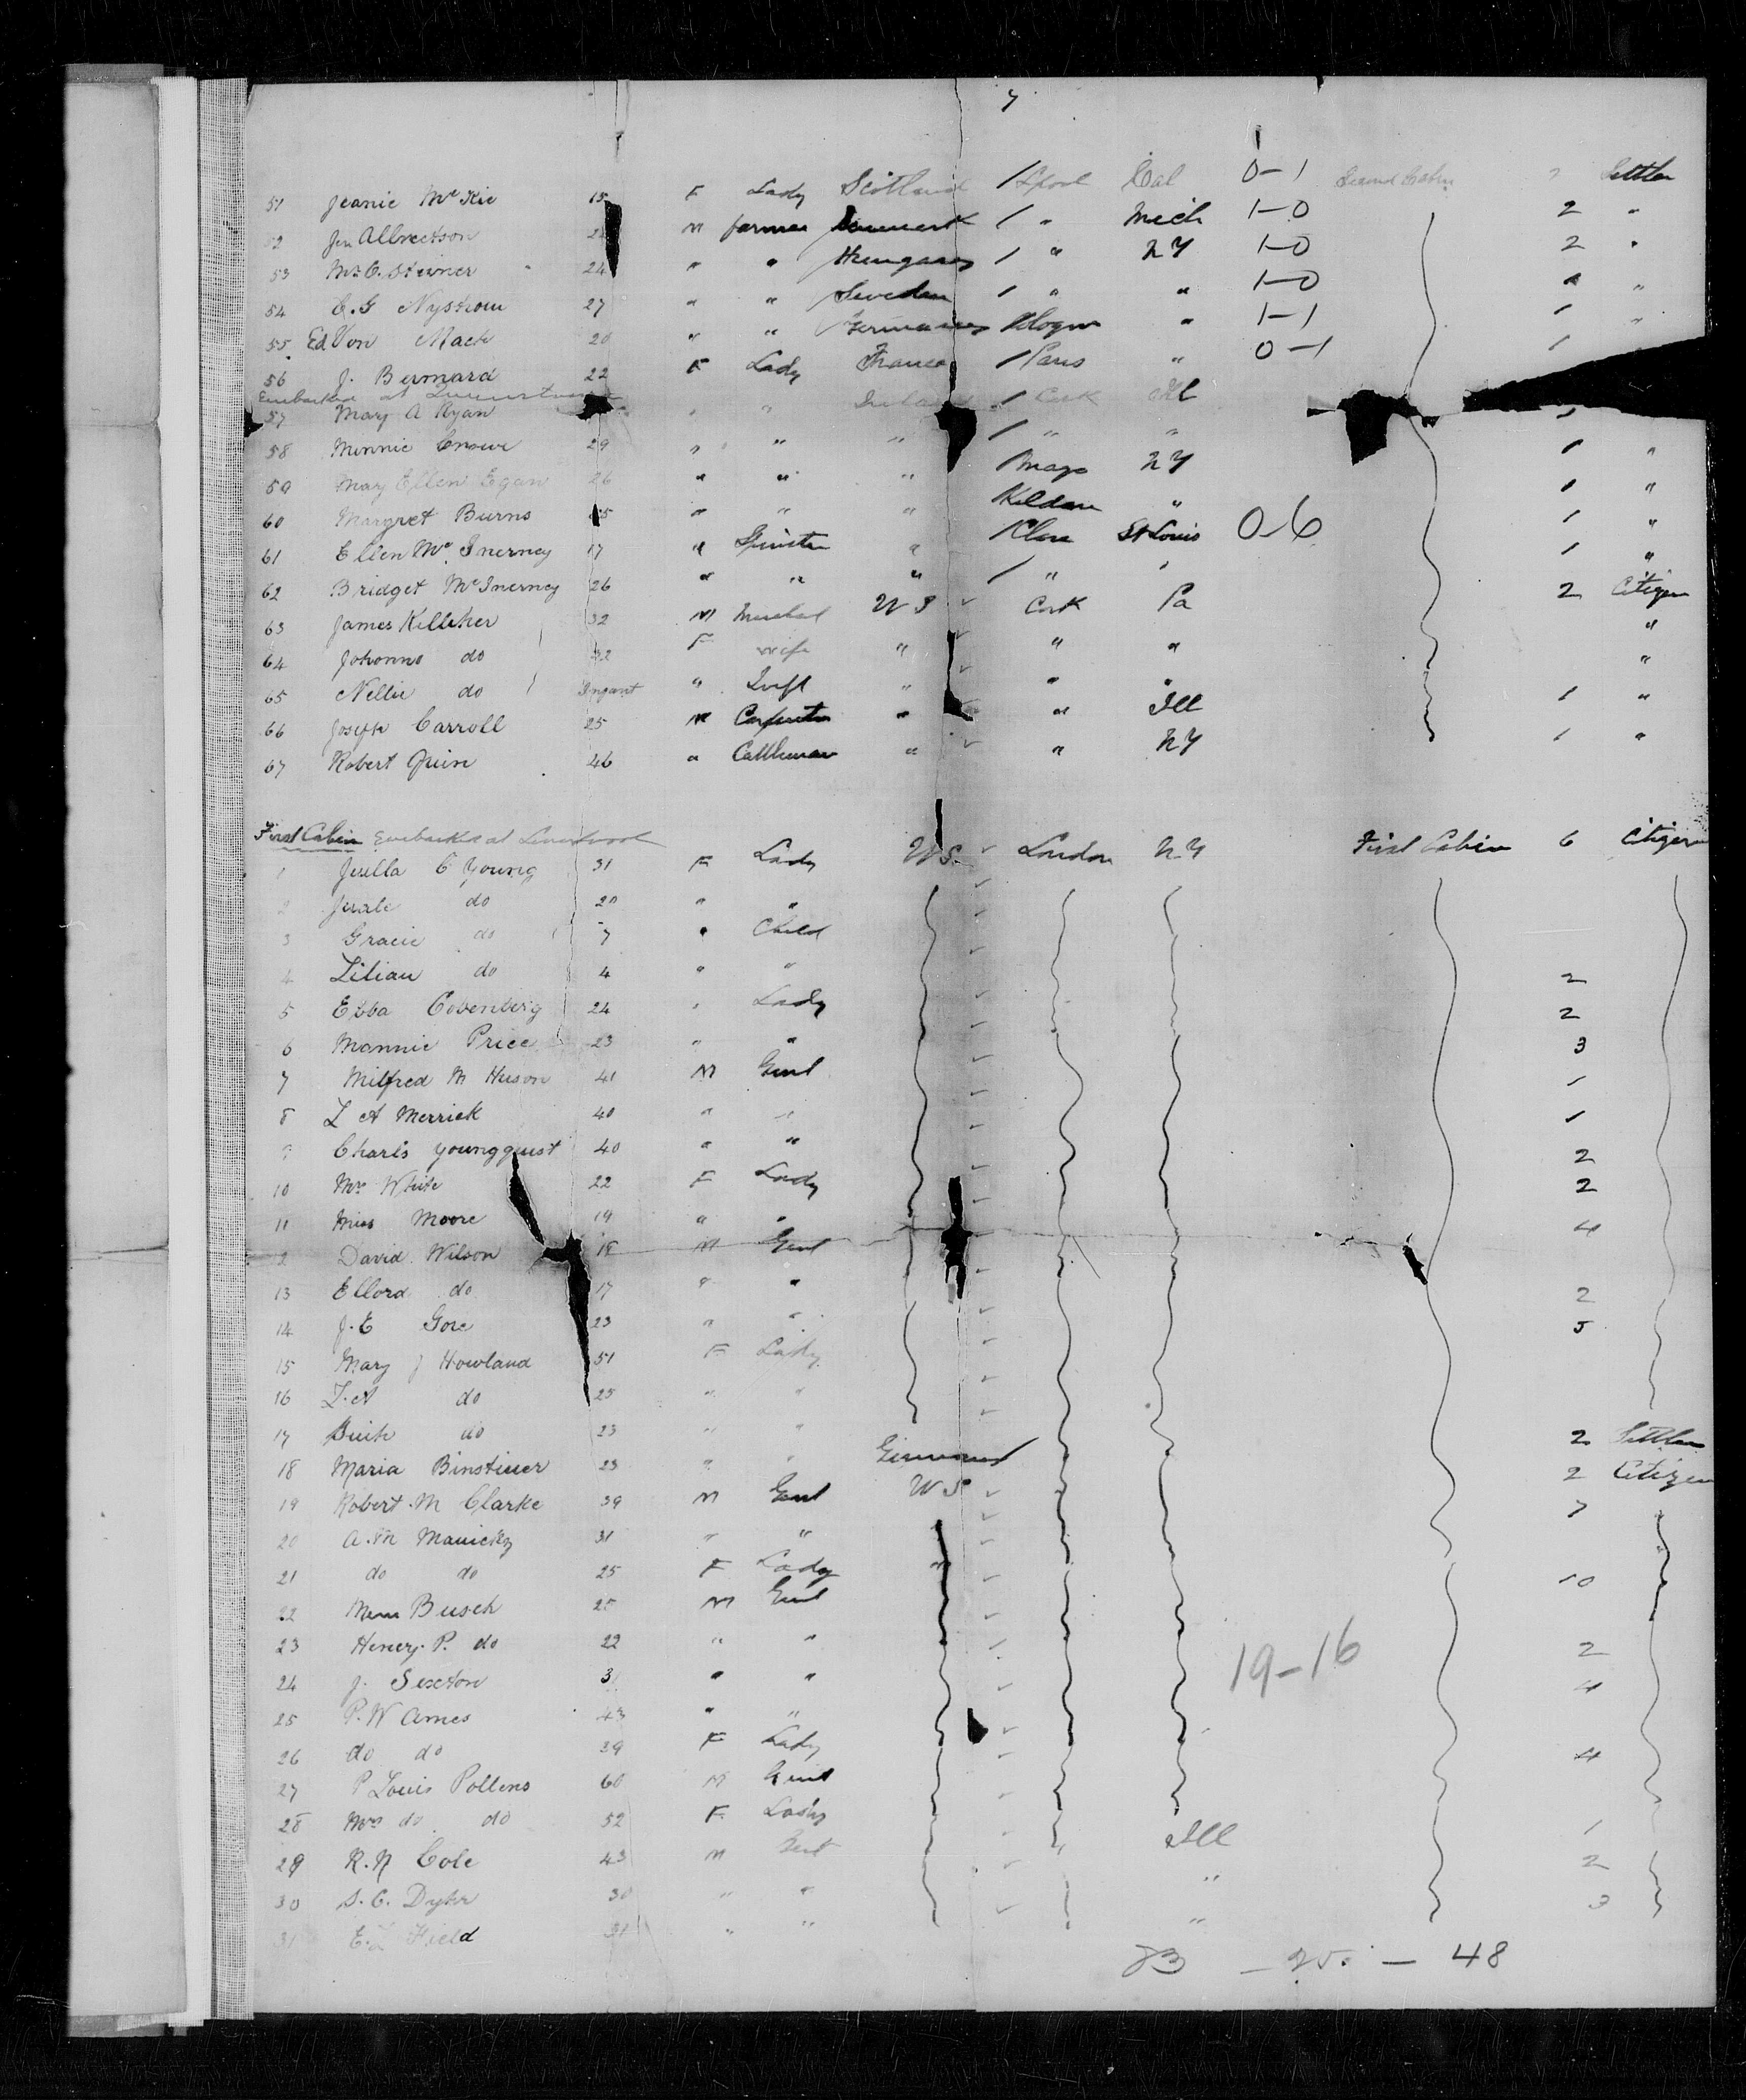 7
51 Jeanie McKie 15 F Lady Scotland 1 Lpool Cal 0-1 Second Cabin 2 Settler
52 Jen Albrectson M farmer 1 " Mich 1-0 2 "
53 C. Steiner 24 " " Hungary 1 " NY 1-0 2 "
54 C. G Nystrom 27 " " Sweden 1 " " 1-0 " "
55 Ed Von Mach 20 " " Germany " 1-1 1 "
56 J. Bernard 22 F Lady France 1 Paris " 0-1 1
Embarked at Queenstown
57 Mary A Ryan " " Ireland 1 Cork Ill 1
58 Minnie Crowe 29 " " " 1 " " 1 "
59 Mary Ellen Egan 26 " " " Mayo NY 1 "
60 Margret Burns " " " Kildare " 1 "
61 Ellen McInerney 17 " Spinster " Clare St Louis 0-6 1 "
62 Bridget McInerney 26 " " " 1 " "
63 James Kelleher 32 M US Cork Pa 2 Citizen
64 Johanna do 32 F wife " " " "
65 Nellie do Infant " Inft " " " "
66 Joseph Carroll 25 M Carpenter " " Ill 1 "
67 Robert Quin 46 " Cattleman " " NY 1 "
First Cabin Embarked at Liverpool
1 C Young 31 F Lady US. London NY First Cabin 6 Citizen
2 do 20 " "
3 Gracie do 7 " Child
4 Lilian do 4 " " 2
5 Ebba 24 " Lady 2
6 Mannie Price 23 " " 3
7 Milfred M Huson 41 M Gent 1
8 L A Merrick 40 " " 1
9 Charls Youngquist 40 " " 2
10 Mrs White 22 F Lady 2
11 Miss Moore 19 " " 4
12 David Wilson 18 M Gent
13 Ellord do 17 " " 2
14 J. E Gore 23 " " 5
15 Mary J Howland 51 F Lady
16 L. A do 25 " "
17 do 23 " " 2 Settler
18 Maria Binstiner 23 " " Germany 2 Citizen
19 Robert M Clarke 39 M Gent US 7
20 A. M 31 " "
21 do do 25 F Lady " 10
22 Busch 25 M Gent
23 Henery P. do 22 " " 2
24 J. Sexton 3 " " 19-16 4
25 P. W Ames 43 " "
26 do do 39 F Lady 4
27 P Louis Pollens 60 M Gent
28 Mrs do do 52 F Lady
29 R. N Cole 43 M Gent " Ill 1
30 S. C. Dyhr 30 " " " 2
31 E. L Field 31 " " " 3
73 - 25 - 48